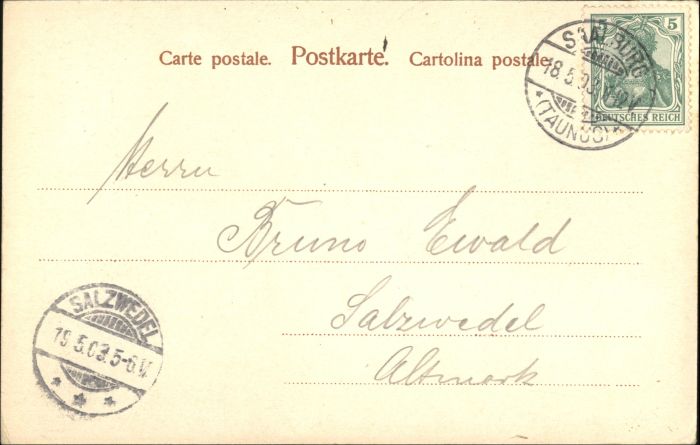 Carte postale. Postkarte. Cartolina postale.
5
DEUTSCHES REICH
SAALBURG
18.5.03.
*(TAUNUS)*
Herrn
Bruno Ewald
Salzwedel
Altmark
SALZWEDEL
19.5.03.5-6V.